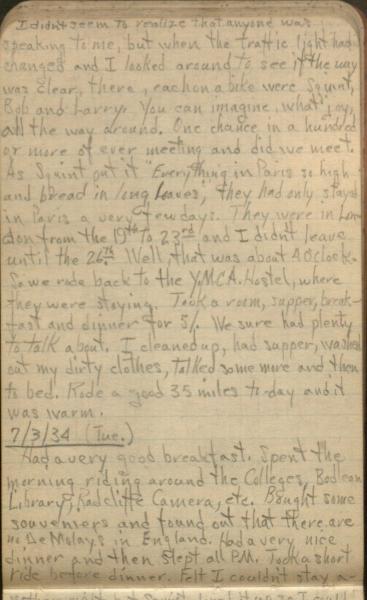 I didn't seem to realize that anyone was
speaking to me, but when the traffic light had
changed and I looked around to see if the way
was clear, there, each on a bike were Squint,
Bob and Larry. You can imagine what joy,
all the way around. One chance in a hundred
or more of ever meeting and did we meet.
As Squint put it "Everything in Paris so high
and bread in long loaves", they had only stayed
in Paris a very few days. They were in Lon-
don from the 19th to 23rd and I didn't leave
until the 26th. Well that was about 4 O'clock.
So we rode back to the Y.M.C.A. Hostel, where
they were staying. Took a room, supper, break-
fast and dinner for 5/. We sure had plenty
to talk about. I cleaned up, had supper, washed
out my dirty clothes, talked some more and then
to bed. Rode a good 35 miles to-day and it
was warm.
7/3/34 (Tue.)
Had a very good breakfast. Spent the
morning riding around the Colleges, Bodlean
Library, Radcliffe Camera, etc. Bought some
souveniers and found out that there are
no DeMolays in England. Had a very nice
dinner and then slept all P.M. Took a short
ride before dinner. Felt I couldn't stay a-